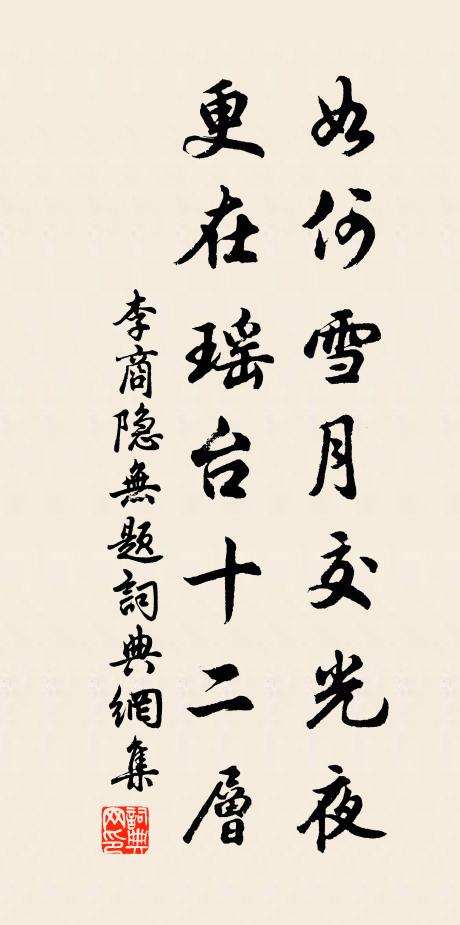 如何雪月交光夜
更在瑶台十二層
李商隐無题詞典網集
詞典网印